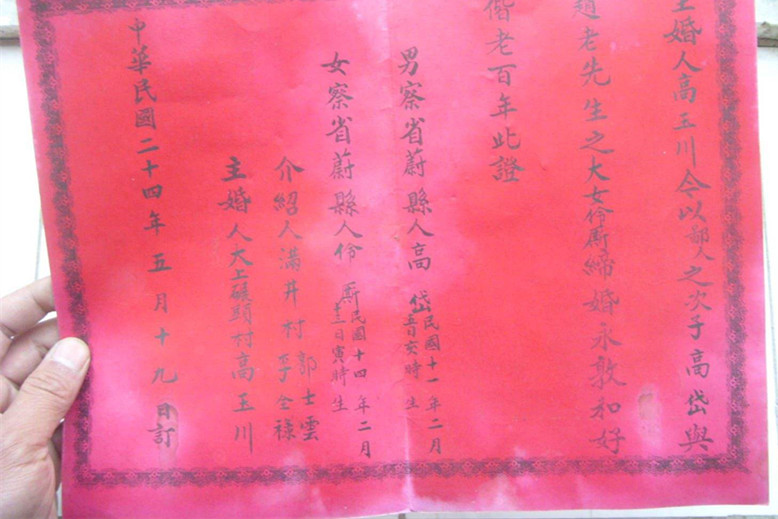 主婚人高玉川今以鄙人之次子高岱與
趙老先生之大女伶厮締婚永敦和好
偕老百年此證
男察省蔚縣人高岱民國十一年二月
五日亥時生
女察省蔚縣人伶厮民國十四年二月
十三日寅時生
介紹人滿井村郭士雲
李全祿
主婚人大上碾頭村高玉川
中華民國二十四年五月十九日訂